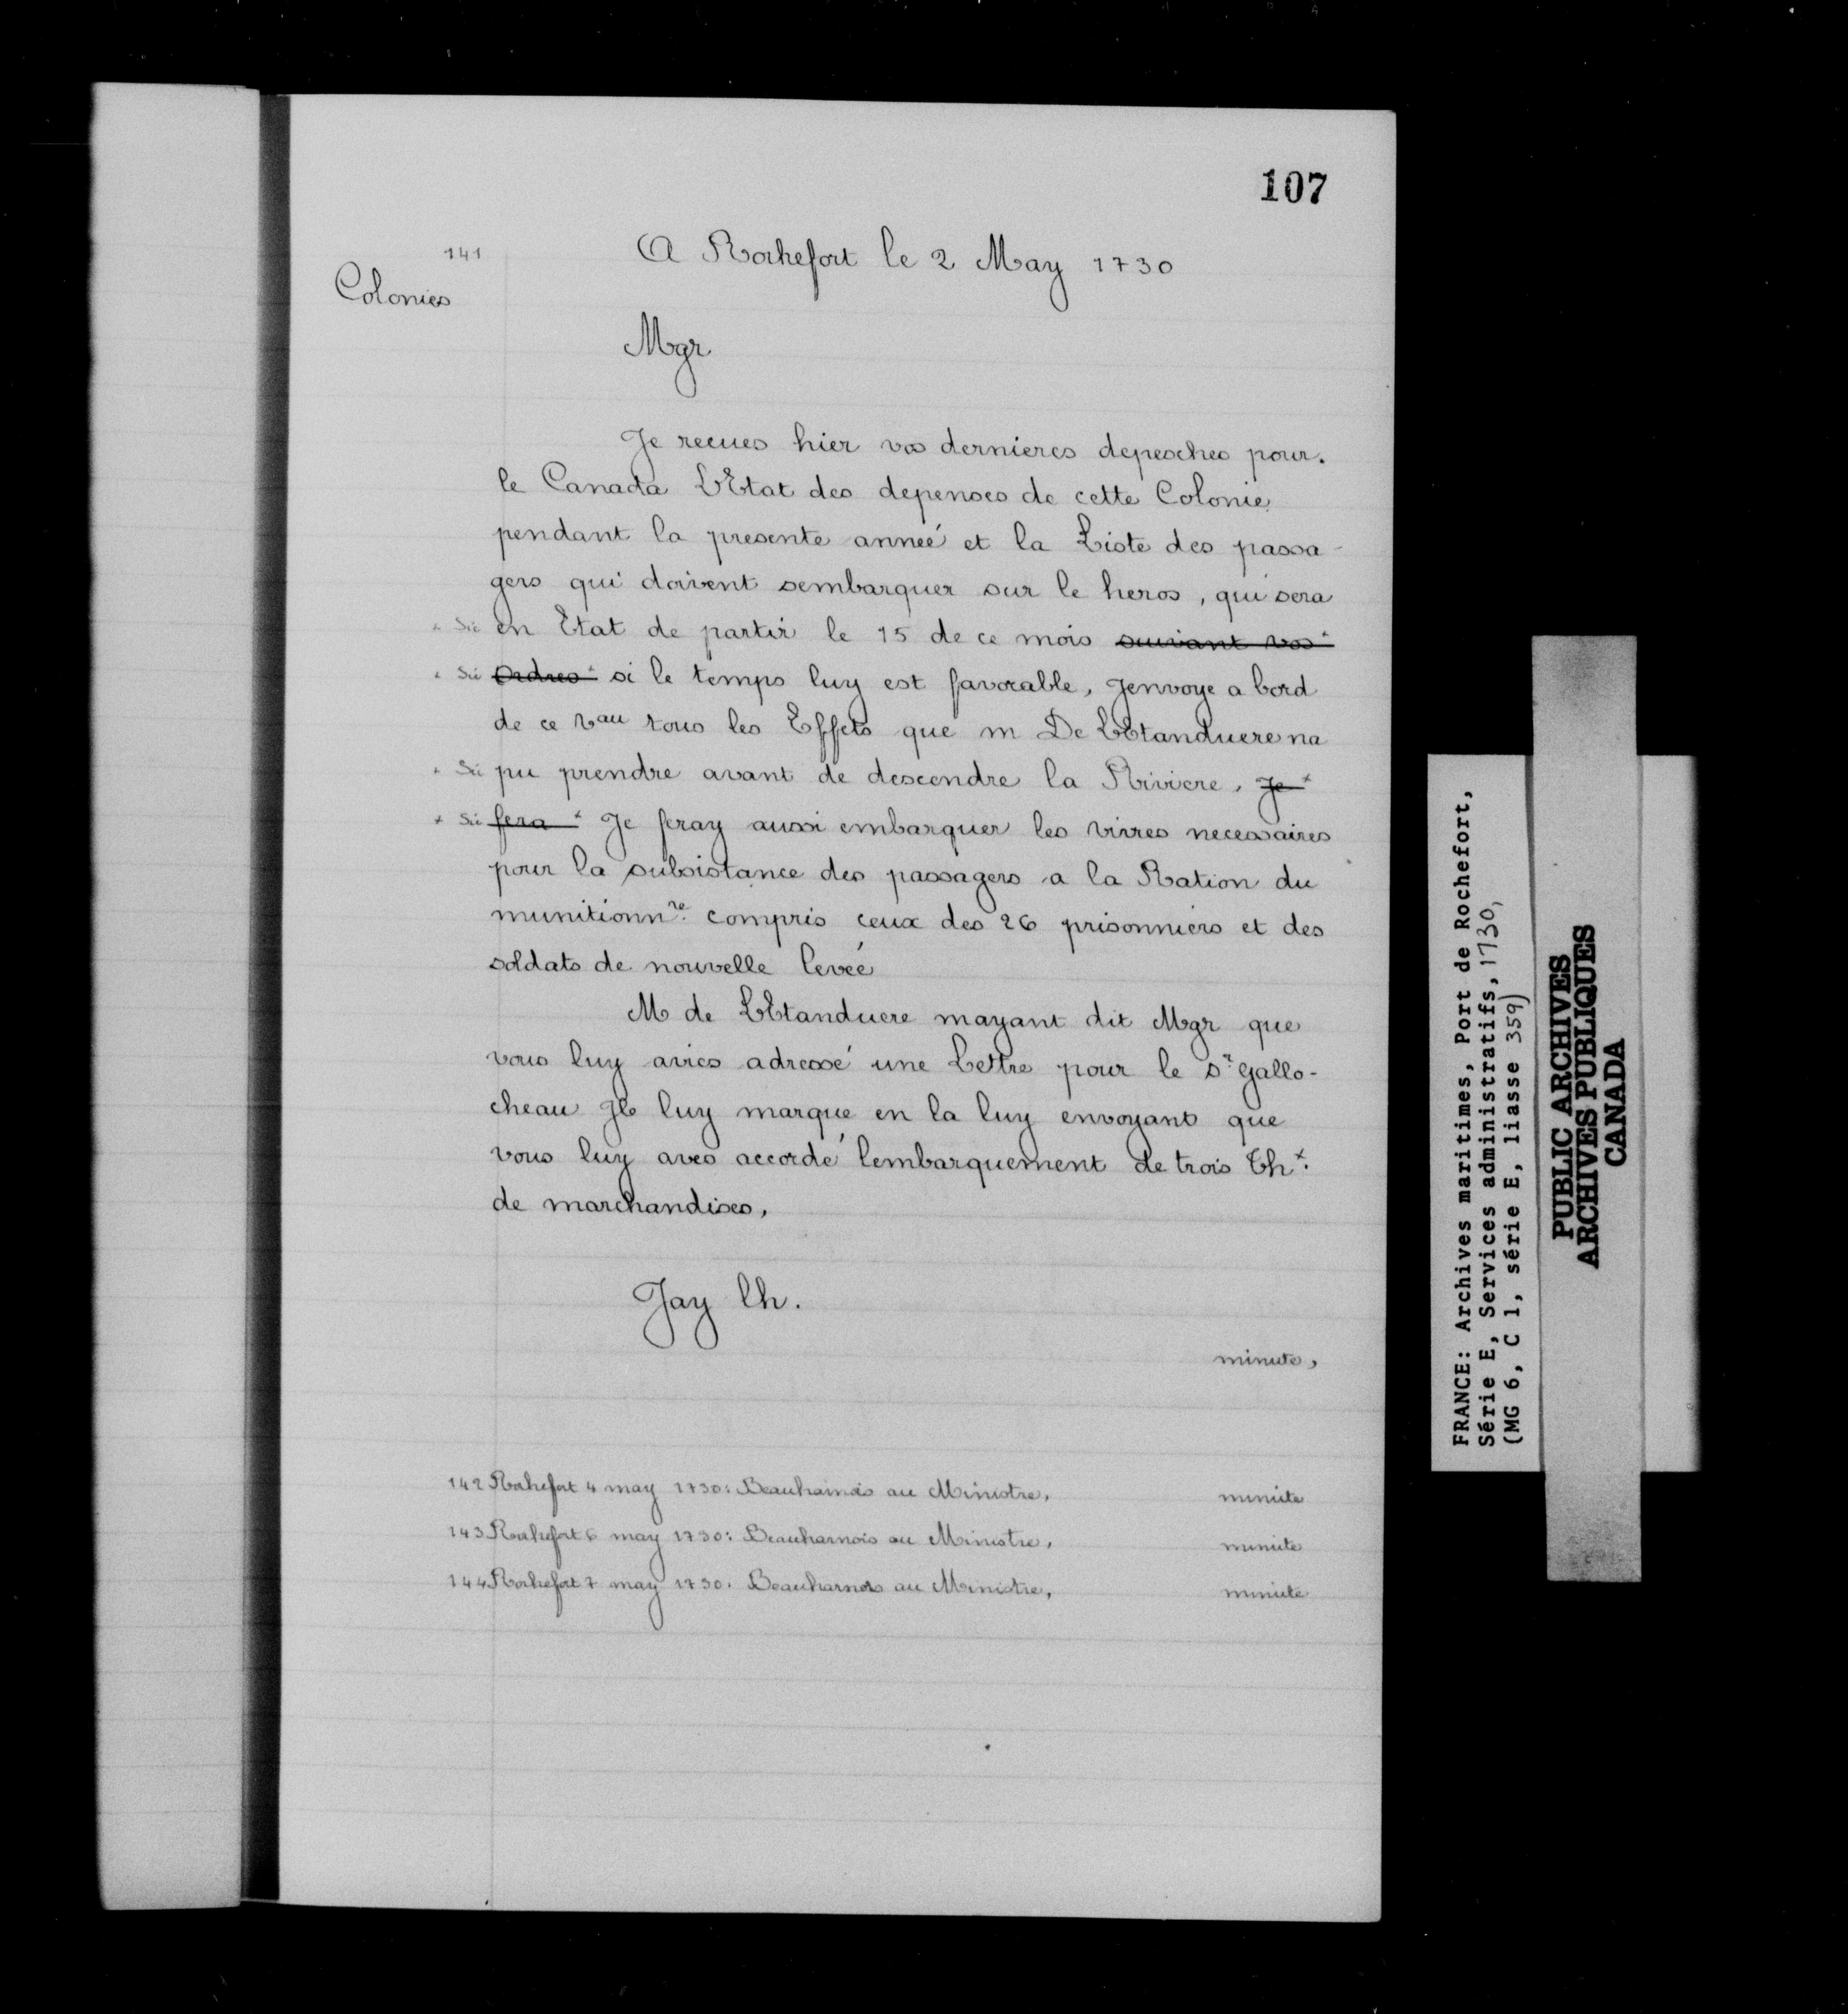 107
141
Colonies
A Rochefort le 2 May 1730
Mgr
Je recues hier vos dernieres depesches pour.
le Canada L'Etat des depenses de cette Colonie
pendant la presente anneé et la Liste des passa-
gers qui doivent sembarquer sur le heros, qui sera
+ Sic en Etat de partir le 15 de ce mois suivant vos +
+ Sic Ordres + si le temps luy est favorable, Jenvoye a bord
de ce Vau tous les Effets que m De LEtanduere na
+ Sic pu prendre avant de descendre la Riviere, Je +
+ Sic fera + Je feray aussi embarquer les vivres necessaires
pour la subsistance des passagers a la Ration du
munitionnre compris ceux des 26 prisonniers et des
soldats de nouvelle leveé
M de LEtanduere mayant dit Mgr que
vous luy avies adressé une Lettre pour le Sr Gallo-
cheau Je luy marque en la luy envoyant que
vous luy aves accordé lembarquement de trois thx.
de marchandises,
Jay lh.
minute,
142 Rochefort 4 may 1730: Beauharnois au Ministre, minute
143 Rochefort 6 may 1730: Beauharnois au Ministre, minute
144 Rochefort 7 may 1730: Beauharnois au Ministre, minute
FRANCE: Archives maritimes, Port de Rochefort,
Série E, Services administratifs, 1730,
(MG 6, C 1, série E, liasse 359)
PUBLIC ARCHIVES
ARCHIVES PUBLIQUES
CANADA